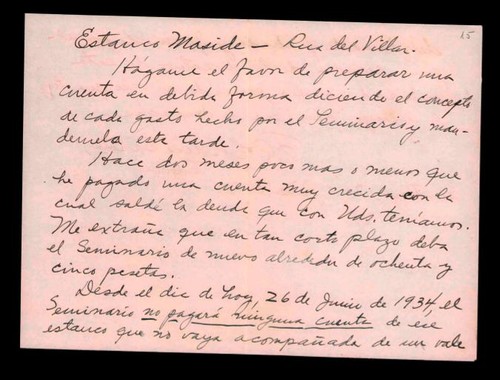 15
Estanco Maside — Rua del Villar.
Hágame el favor de preparar una
cuenta en debida forma diciendo el concepto
de cada gasto hecho por el Seminario y man-
demela esta tarde.
Hace dos meses poco mas o menos que
he pagado una cuenta muy crecida con la
cual saldé la deuda que con Uds. teníamos.
Me extraña que en tan corto plazo deba
el Seminario de nuevo alrededor de ochenta y
cinco pesetas.
Desde el dia de hoy, 26 de Junio de 1934, el
Seminario no pagará ninguna cuenta de ese
estanco que no vaya acompañada de un vale